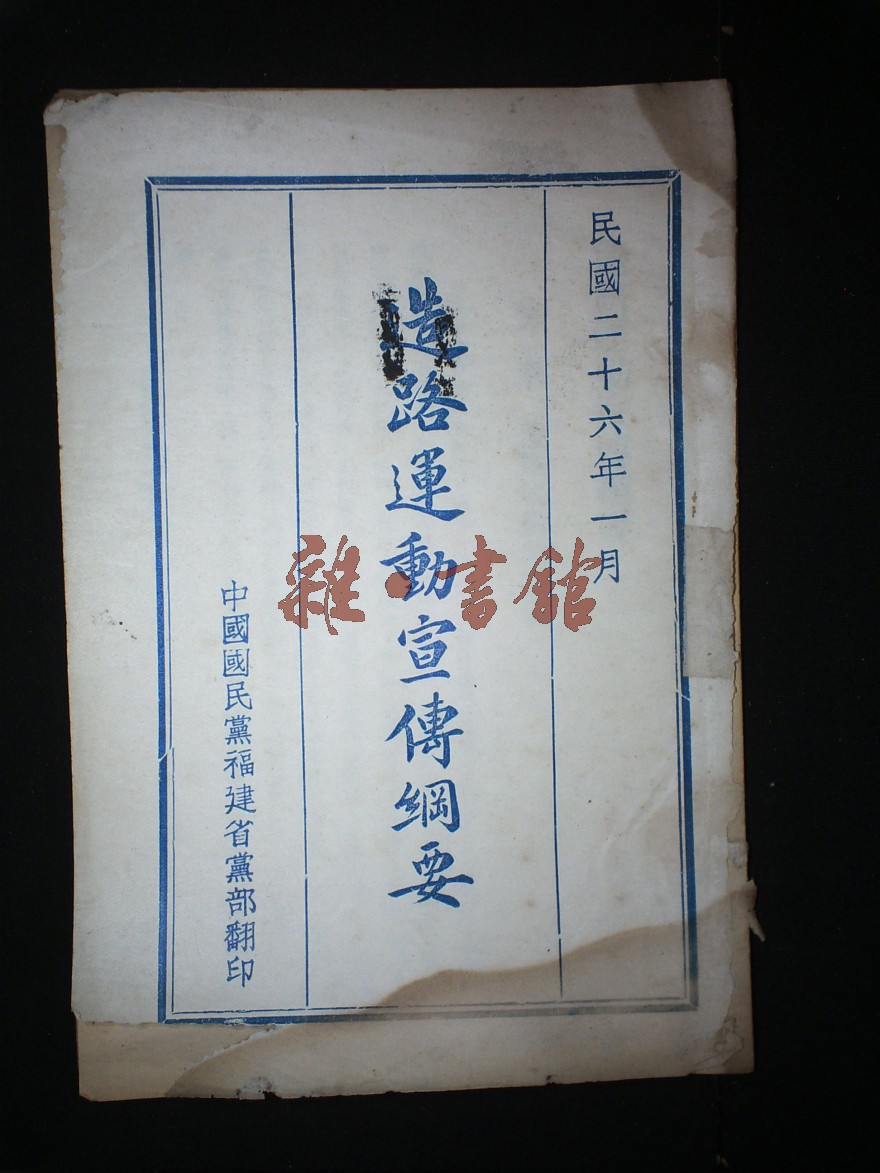 民國二十六年一月
造路運動宣傳綱要
中國國民黨福建省黨部翻印
雜·書館